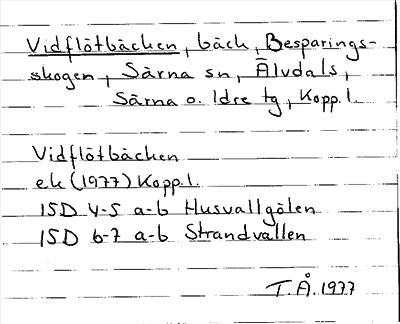 Vidflötbäcken, bäck, Besparings-
skogen, Särna sn, Älvdals,
Särna o. Idre tg, Kopp. l.
Vidflötbäcken
ek (1977) Kopp. l.
15D 4-5 a-b Husvallgölen
15D 6-7 a-b Strandvallen
T.Å. 1977